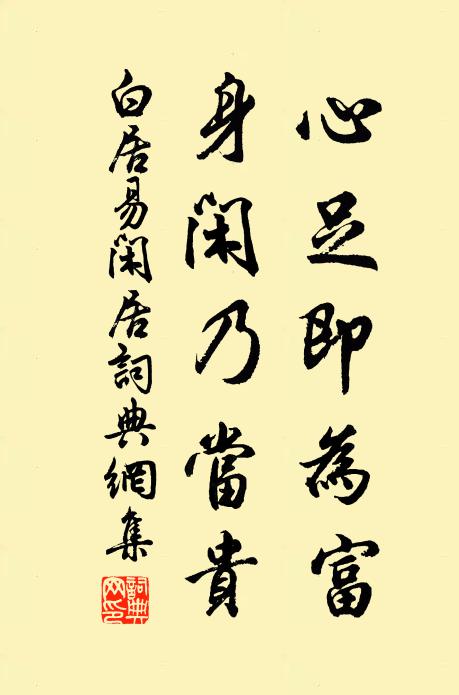 心足即為富
身閑乃當貴
白居易閑居詞典網集
詞典网印